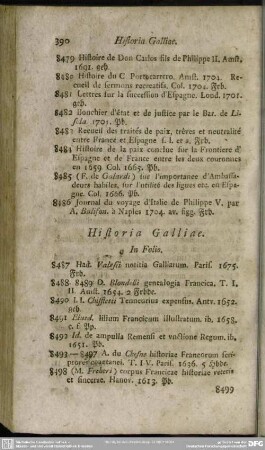 390 Historia Galliae.
8479 Histoire de Don Carlos fils de Philippe II. Amst.
1691. geb.
8480 Histoire du C Portocarrero. Amst. 1704. Re-
cueil de sermons recreatifs. Col. 1704. Frb.
8481 Lettres sur la succession d'Espagne. Lond. 1701.
geb.
8482 Bouchier d'état et de justice par le Bar. de Li-
sola. 1701. Pb.
8483 Recueil des traités de paix, trêves et neutralité
entre France et Espagne s. l. et a. Frb.
8484 Histoire de la paix conclue sur la Frontiere d'
Espagne et de France entre les deux couronnes
en 1659. Col. 1665. Pb.
8485 de l'importance d'Ambassa-
deurs habiles, sur l'utilité des ligues etc. en Espa-
gne. Col. 1666. Pb.
8486 Journal du voyage d'Italie de Philippe V. par
A. Bulifon. à Naples 1704. av. figg. Frb.
Historia Galliae.
a In Folio.
8487 Hadr. Valesii notitia Galliarum. Paris. 1675.
Frb.
8488-8489 D. Blondelli genealogia Francica. T. I.
II. Amst. 1654. 2 Frbde.
8490 I. I. Chiffletii Tenneurius expensus. Antv. 1652.
geb.
8491 Eiusd. lilium Francicum illustratum. ib. 1658.
c. f. Pp.
8492 Id. de ampulla Remensi et unctione Regum. ib.
1651. Pb.
8493-8497 A. du Chesne historiae Francorum scri-
ptores coaetanei. T. I-V Paris. 1636. 5 Hbde.
8498 (M. Freheri) corpus Francicae historiae veteris
et sincerae. Hanov. 1613. Pb.
8499